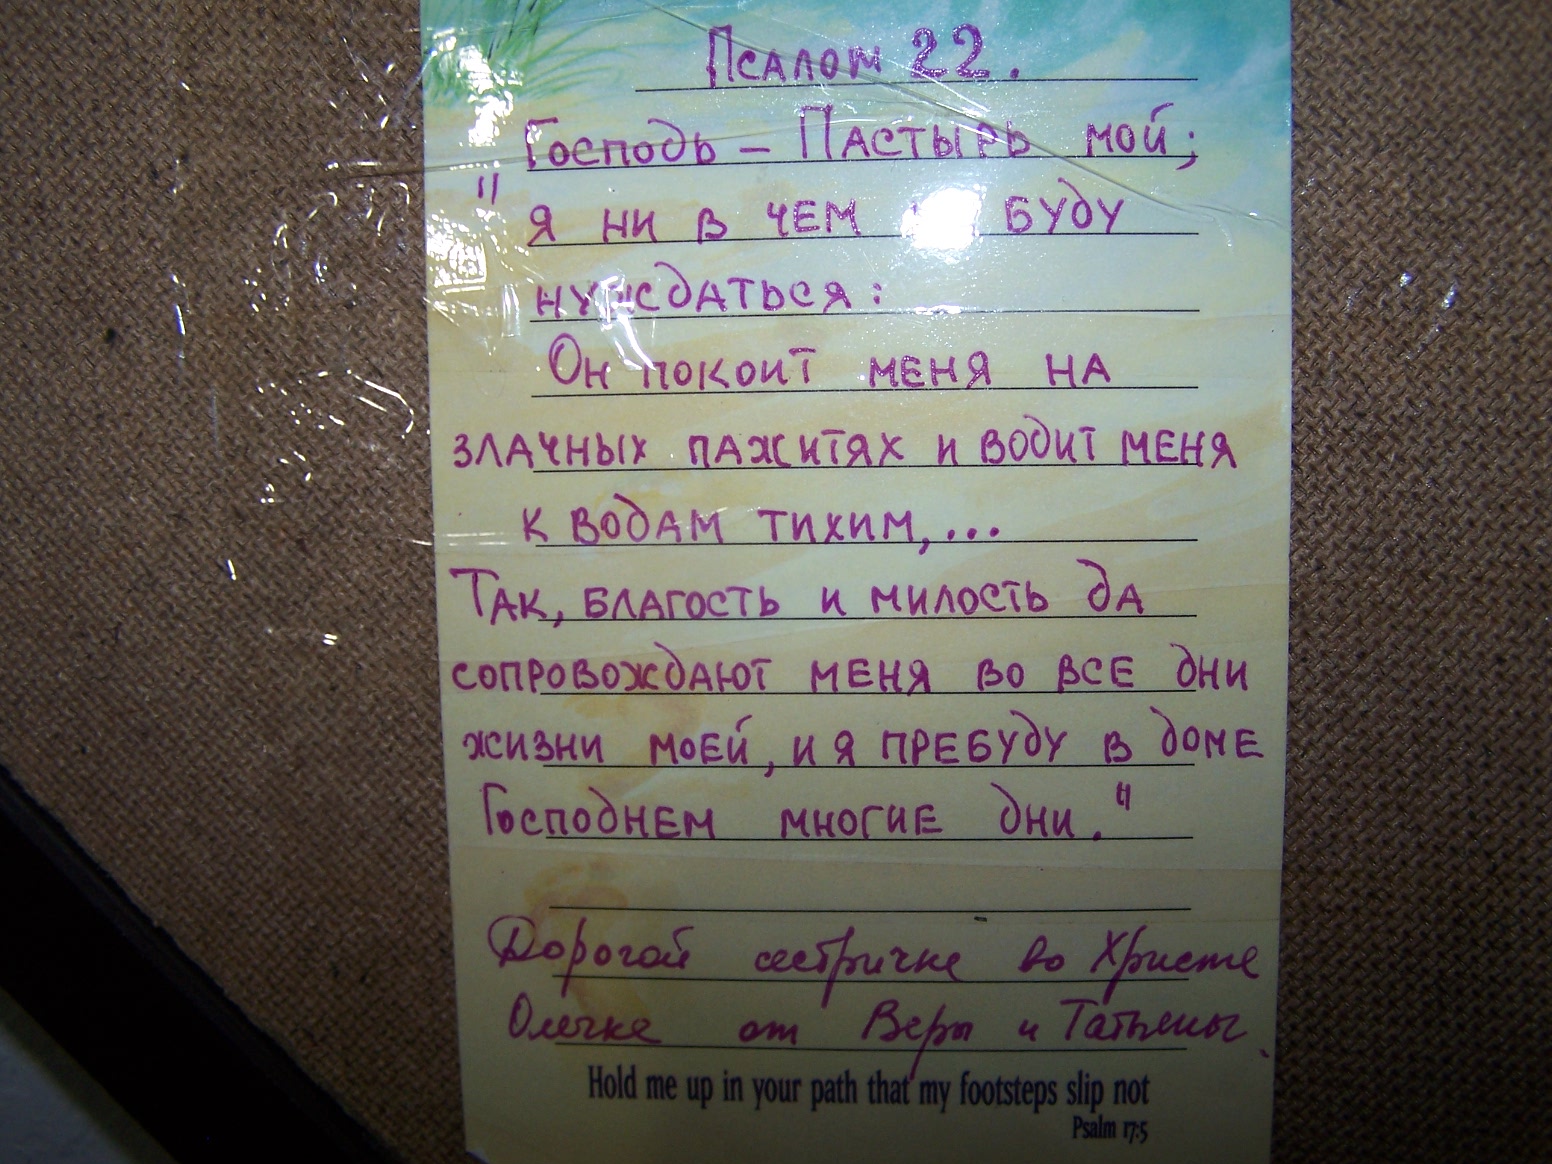 Псалом 22.
Господь – Пастырь мой;
" я ни в чем буду
нуждаться:
Он покоит меня на
злачных пажитях и водит меня
к водам тихим,...
Так, благость и милость да
сопровождают меня во все дни
жизни моей, и я пребуду в доме
Господнем многие дни."
Дорогой сестричке во Христе
Олечке от Веры и Татьяны.
Hold me up in your path that my footsteps slip not
Psalm 17:5